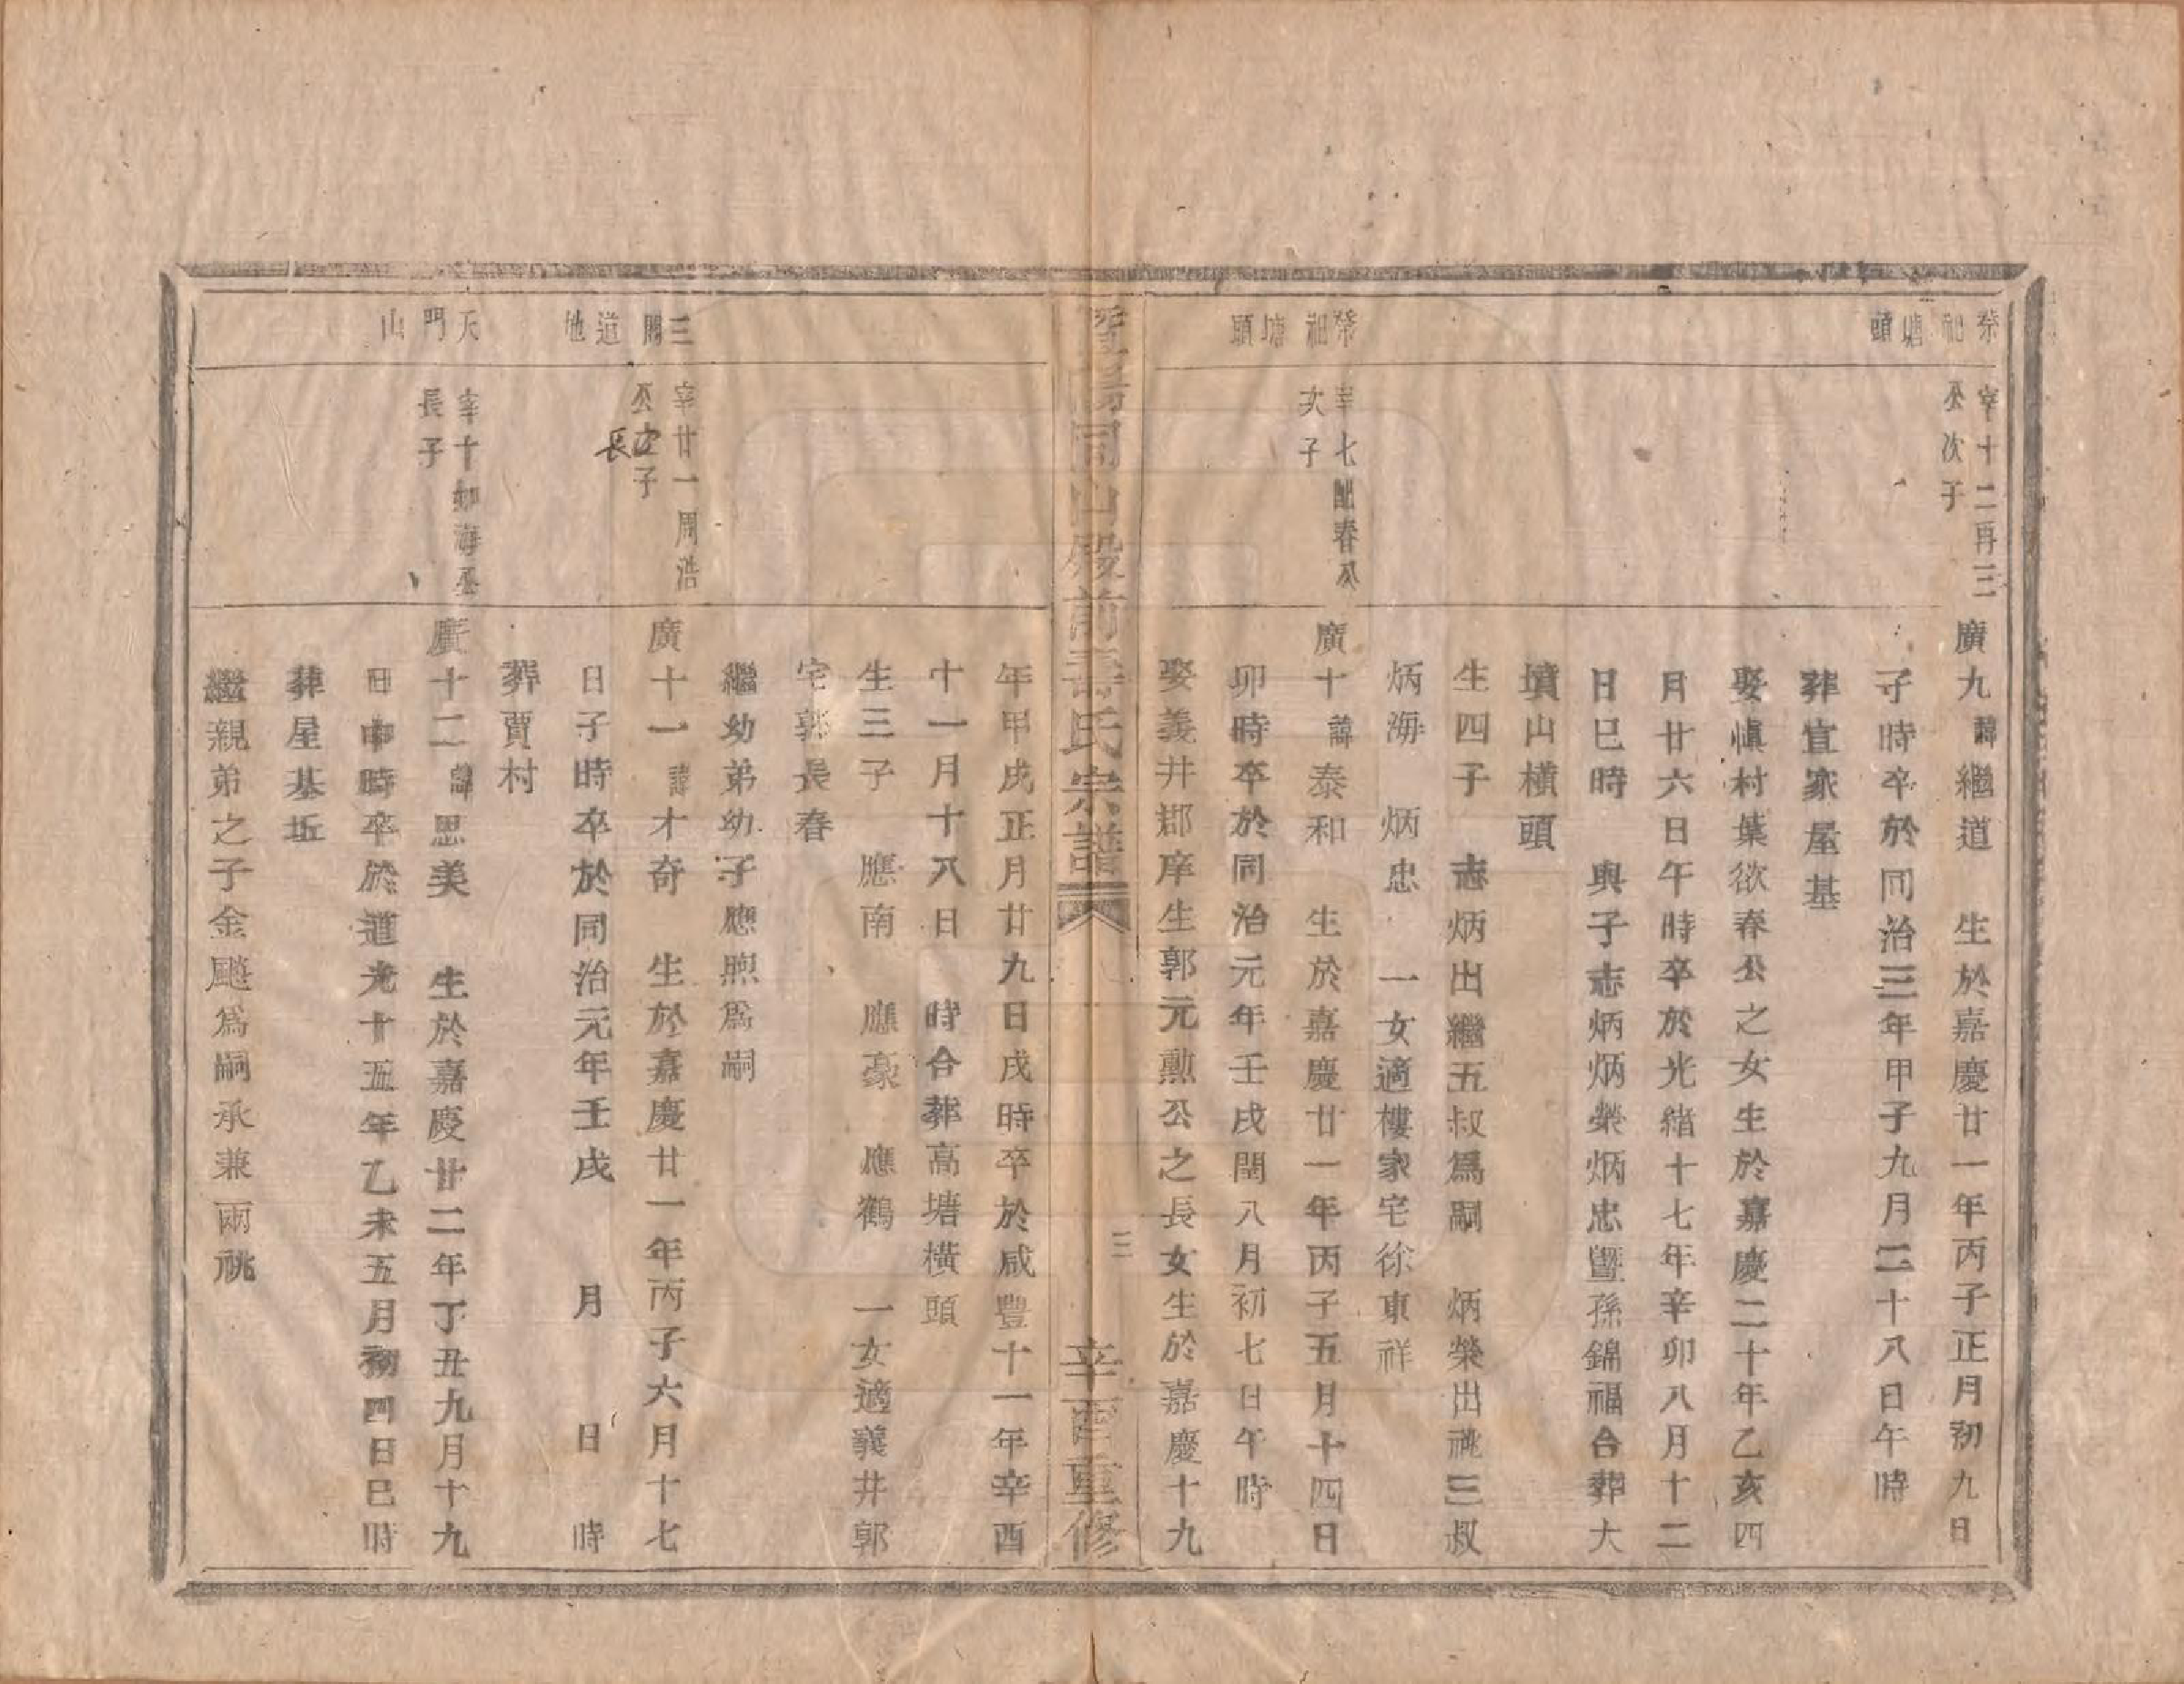 祭祖塘頭
宰十二再三
公次子
廣九諱繼道　生於嘉慶廿一年丙子正月初九日
子時卒於同治三年甲子九月二十八日午時
葬宣家屋基
娶愼村葉欲春公之女生於嘉慶二十年乙亥四
月廿六日午時卒於光緒十七年辛卯八月十二
日巳時　與子志炳炳榮炳忠曁孫錦福合葬大
墳山橫頭
生四子　志炳出繼五叔爲嗣　炳榮出祧三叔
炳海　炳忠　一女適樓家宅徐東祥
祭祖塘頭
宰七配春公
次子
廣十諱泰和　生於嘉慶廿一年丙子五月十四日
卯時卒於同治元年壬戌閏八月初七日午時
娶義井郡庠生郭元勲公之長女生於嘉慶十九
暨陽同山殿前壽氏宗譜
三
辛酉重修
年甲戌正月廿九日戌時卒於咸豐十一年辛酉
十一月十八日　時合葬高塘橫頭
生三子　應南　應豪　應鶴　一女適義井郭
宅郭長春
繼幼弟幼子應煦爲嗣
三間道地
宰廿一周浩
公次子
長
廣十一諱才奇　生於嘉慶廿一年丙子六月十七
日子時卒於同治元年壬戌　月　日　時
葬賈村
天門山
宰十如海公
長子
廣十二諱思美　生於嘉慶廿二年丁丑九月十九
日申時卒於道光十五年乙未五月初四日巳時
葬屋基坵
繼親弟之子金颺爲嗣承兼兩祧